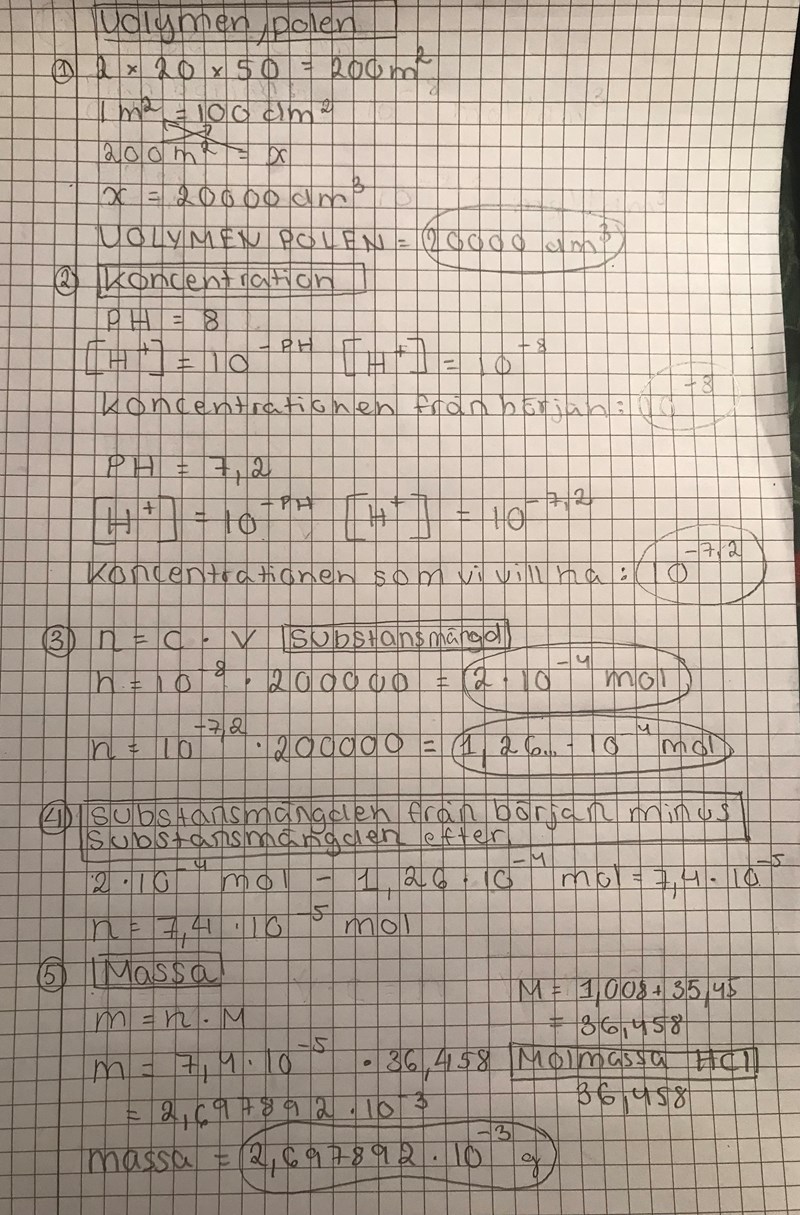 Volymen, polen
① 2 × 20 × 50 = 200m²
1m² = 100 dm²
200m² = x
x = 20000 dm³
VOLYMEN POLEN = 20000 dm³
② Koncentration
PH = 8
[H⁺] = 10⁻ᴾᴴ [H⁺] = 10⁻⁸
Koncentrationen från början: 10⁻⁸
PH = 7,2
[H⁺] = 10⁻ᴾᴴ [H⁺] = 10^-7,2
Koncentrationen som vi vill ha: 10^-7,2
③ n = c · V Substansmängd
n = 10⁻⁸ · 200000 = 2 · 10⁻⁴ mol
n = 10^-7,2 · 200000 = 1,26.. · 10⁻⁴ mol
④ Substansmängden från början minus
substansmängden efter
2 · 10⁻⁴ mol - 1,26 · 10⁻⁴ mol = 7,4 · 10⁻⁵
n = 7,4 · 10⁻⁵ mol
⑤ Massa
M = 1,008 + 35,45
m = n · M
= 36,458
m = 7,4 · 10⁻⁵ · 36,458 Molmassa HCl
= 2,697892 · 10⁻³ 36,458
massa = 2,697892 · 10⁻³ g